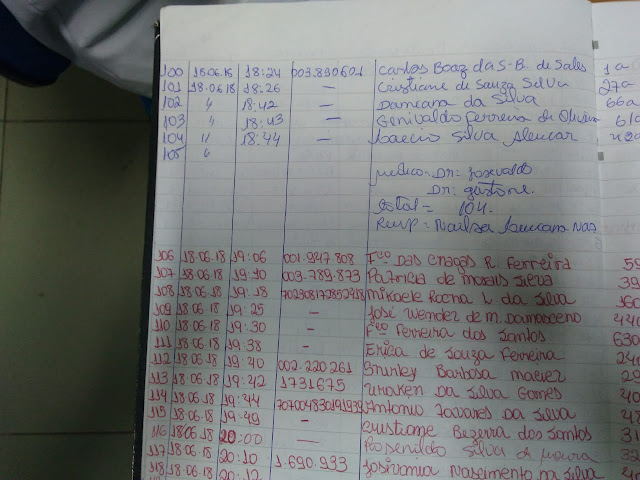 100 18.06.18 18:24 003.890601 Carlos Boaz da S. B. de Sales 1a
101 18.06.18 18:26 — Cristiane de Souza Silva 27a
102 " 18:42 — Damiana da Silva 66a
103 " 18:43 — Genivaldo Ferreira de Oliveira 61a
104 " 18:44 — Silva Alencar 42a
105 "
Dr: Josevaldo
Dr:
total = 104.
Resp:
106 18.06.18 19:06 001.947.808 Fco das Chagas R. Ferreira 59
107 18.06.18 19:10 003.789.873 Patricia de Morais Silva 39
108 18.06.18 19:18 Mikaele Rocha L. da Silva 16
109 18.06.18 19:25 - José Wender de M. Damasceno 44
110 18.06.18 19:30 - Fco Ferreira dos Santos 630
111 18.06.18 19:38 - Erica de Souza Ferreira 240
112 18.06.18 19:40 002.220.261 Barbosa Maciel 29
113 18.06.18 19:42 1731675 da Silva Gomes 40
114 18.06.18 19:44 Antonio Tavares da Silva 48
115 18.06.18 19:49 - Cristiane Bezerra dos Santos 31
116 18.06.18 20:00 — Rosenildo Silva de Moura 32
117 18.06.18 20:10 1.690.933 Josivania Nascimento da Silva
118 18.06.18 20:12